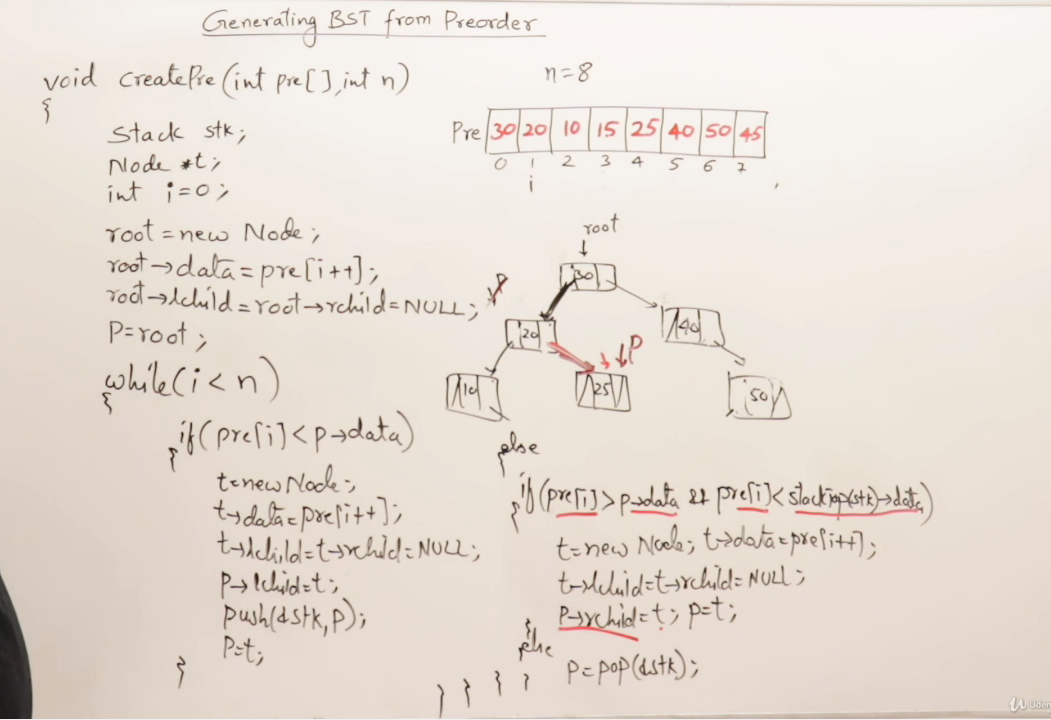 Generating BST from Preorder
void CreatePre(int pre[],int n)
{
Stack stk;
Node *t;
int i=0;
root=new Node;
root→data=pre[i++];
root→lchild=root→rchild=NULL;
P=root;
while(i<n)
{
if(pre[i]<p→data)
{
t=new Node;
t→data=pre[i++];
t→lchild=t→rchild=NULL;
P→lchild=t;
push(&stk,P);
P=t;
}
n=8
Pre 30 20 10 15 25 40 50 45
0 1 2 3 4 5 6 7
i
root
30
P
20 40
P
10 25 50
else
{
if(pre[i]>p→data && pre[i]<stacktop(stk)→data)
{
t=new Node; t→data=pre[i++];
t→lchild=t→rchild=NULL;
P→rchild=t; p=t;
}
else
P=pop(&stk);
} } } }
Udem